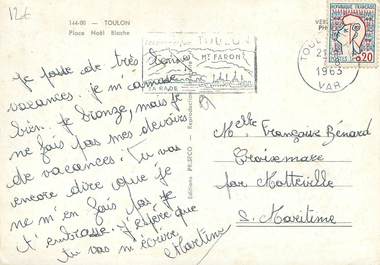 12€
144-00 - TOULON
Place Noël Blache
TOULON
Mt FARON
LA RADE
TOULON
21-
1963
VAR
REPUBLIQUE FRANÇAISE
0,20
je passe de très bonnes
vacances. je m'amuse
bien. je bronze, mais je
ne fais pas mes devoirs
de vacances. tu vas
encore dire que je
ne m'en fais pas. je
t'embrasse. j'espère que
tu vas m'écrire
Martine
Editions PRISECO - Reproduction
Melle Françoise Bénard
Croixmare
par Motteville
S. Maritime